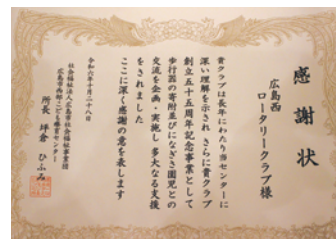 感謝状
広島西
ロータリークラブ様
貴クラブは長年にわたり当センターに
深い理解を示され さらに貴クラブ
創立五十五周年記念事業として
歩行器の寄附並びになぎさ園児との
交流を企画・実施し 多大なる支援
をされました
ここに深く感謝の意を表します
令和六年十月二十八日
社会福祉法人広島市社会福祉事業団
広島市西部こども療育センター
所長 坪倉 ひふみ